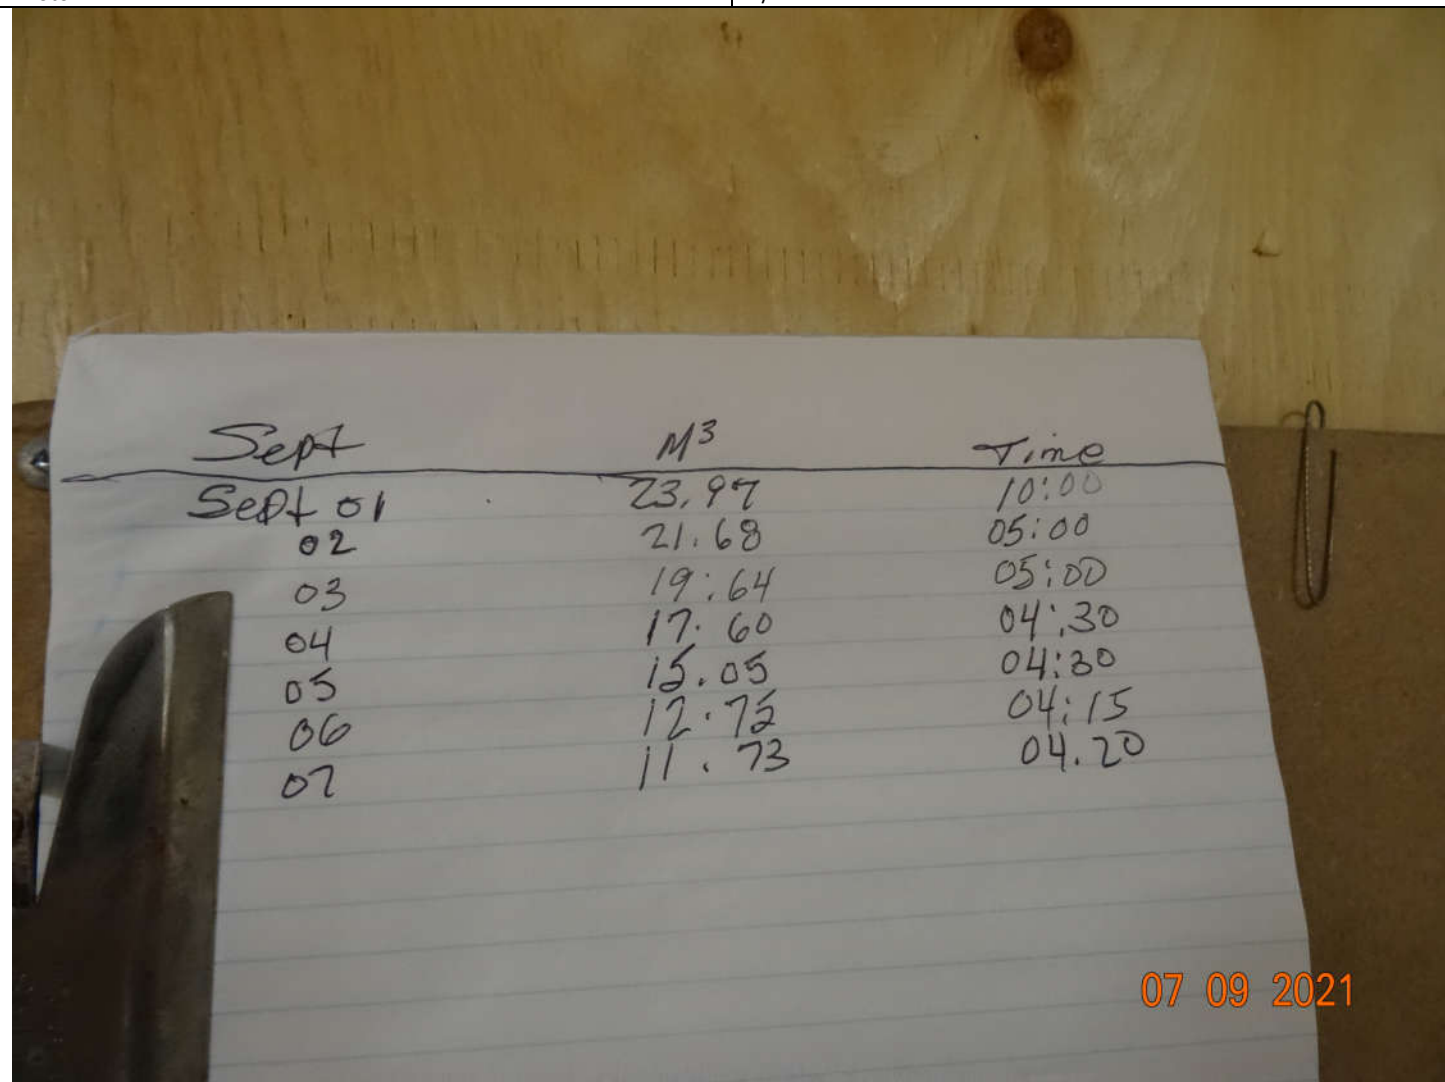 Sept M³ Time
Sept 01 23.97 10:00
02 21.68 05:00
03 19:64 05:00
04 17.60 04:30
05 15.05 04:30
06 12.75 04:15
07 11.73 04.20
07 09 2021